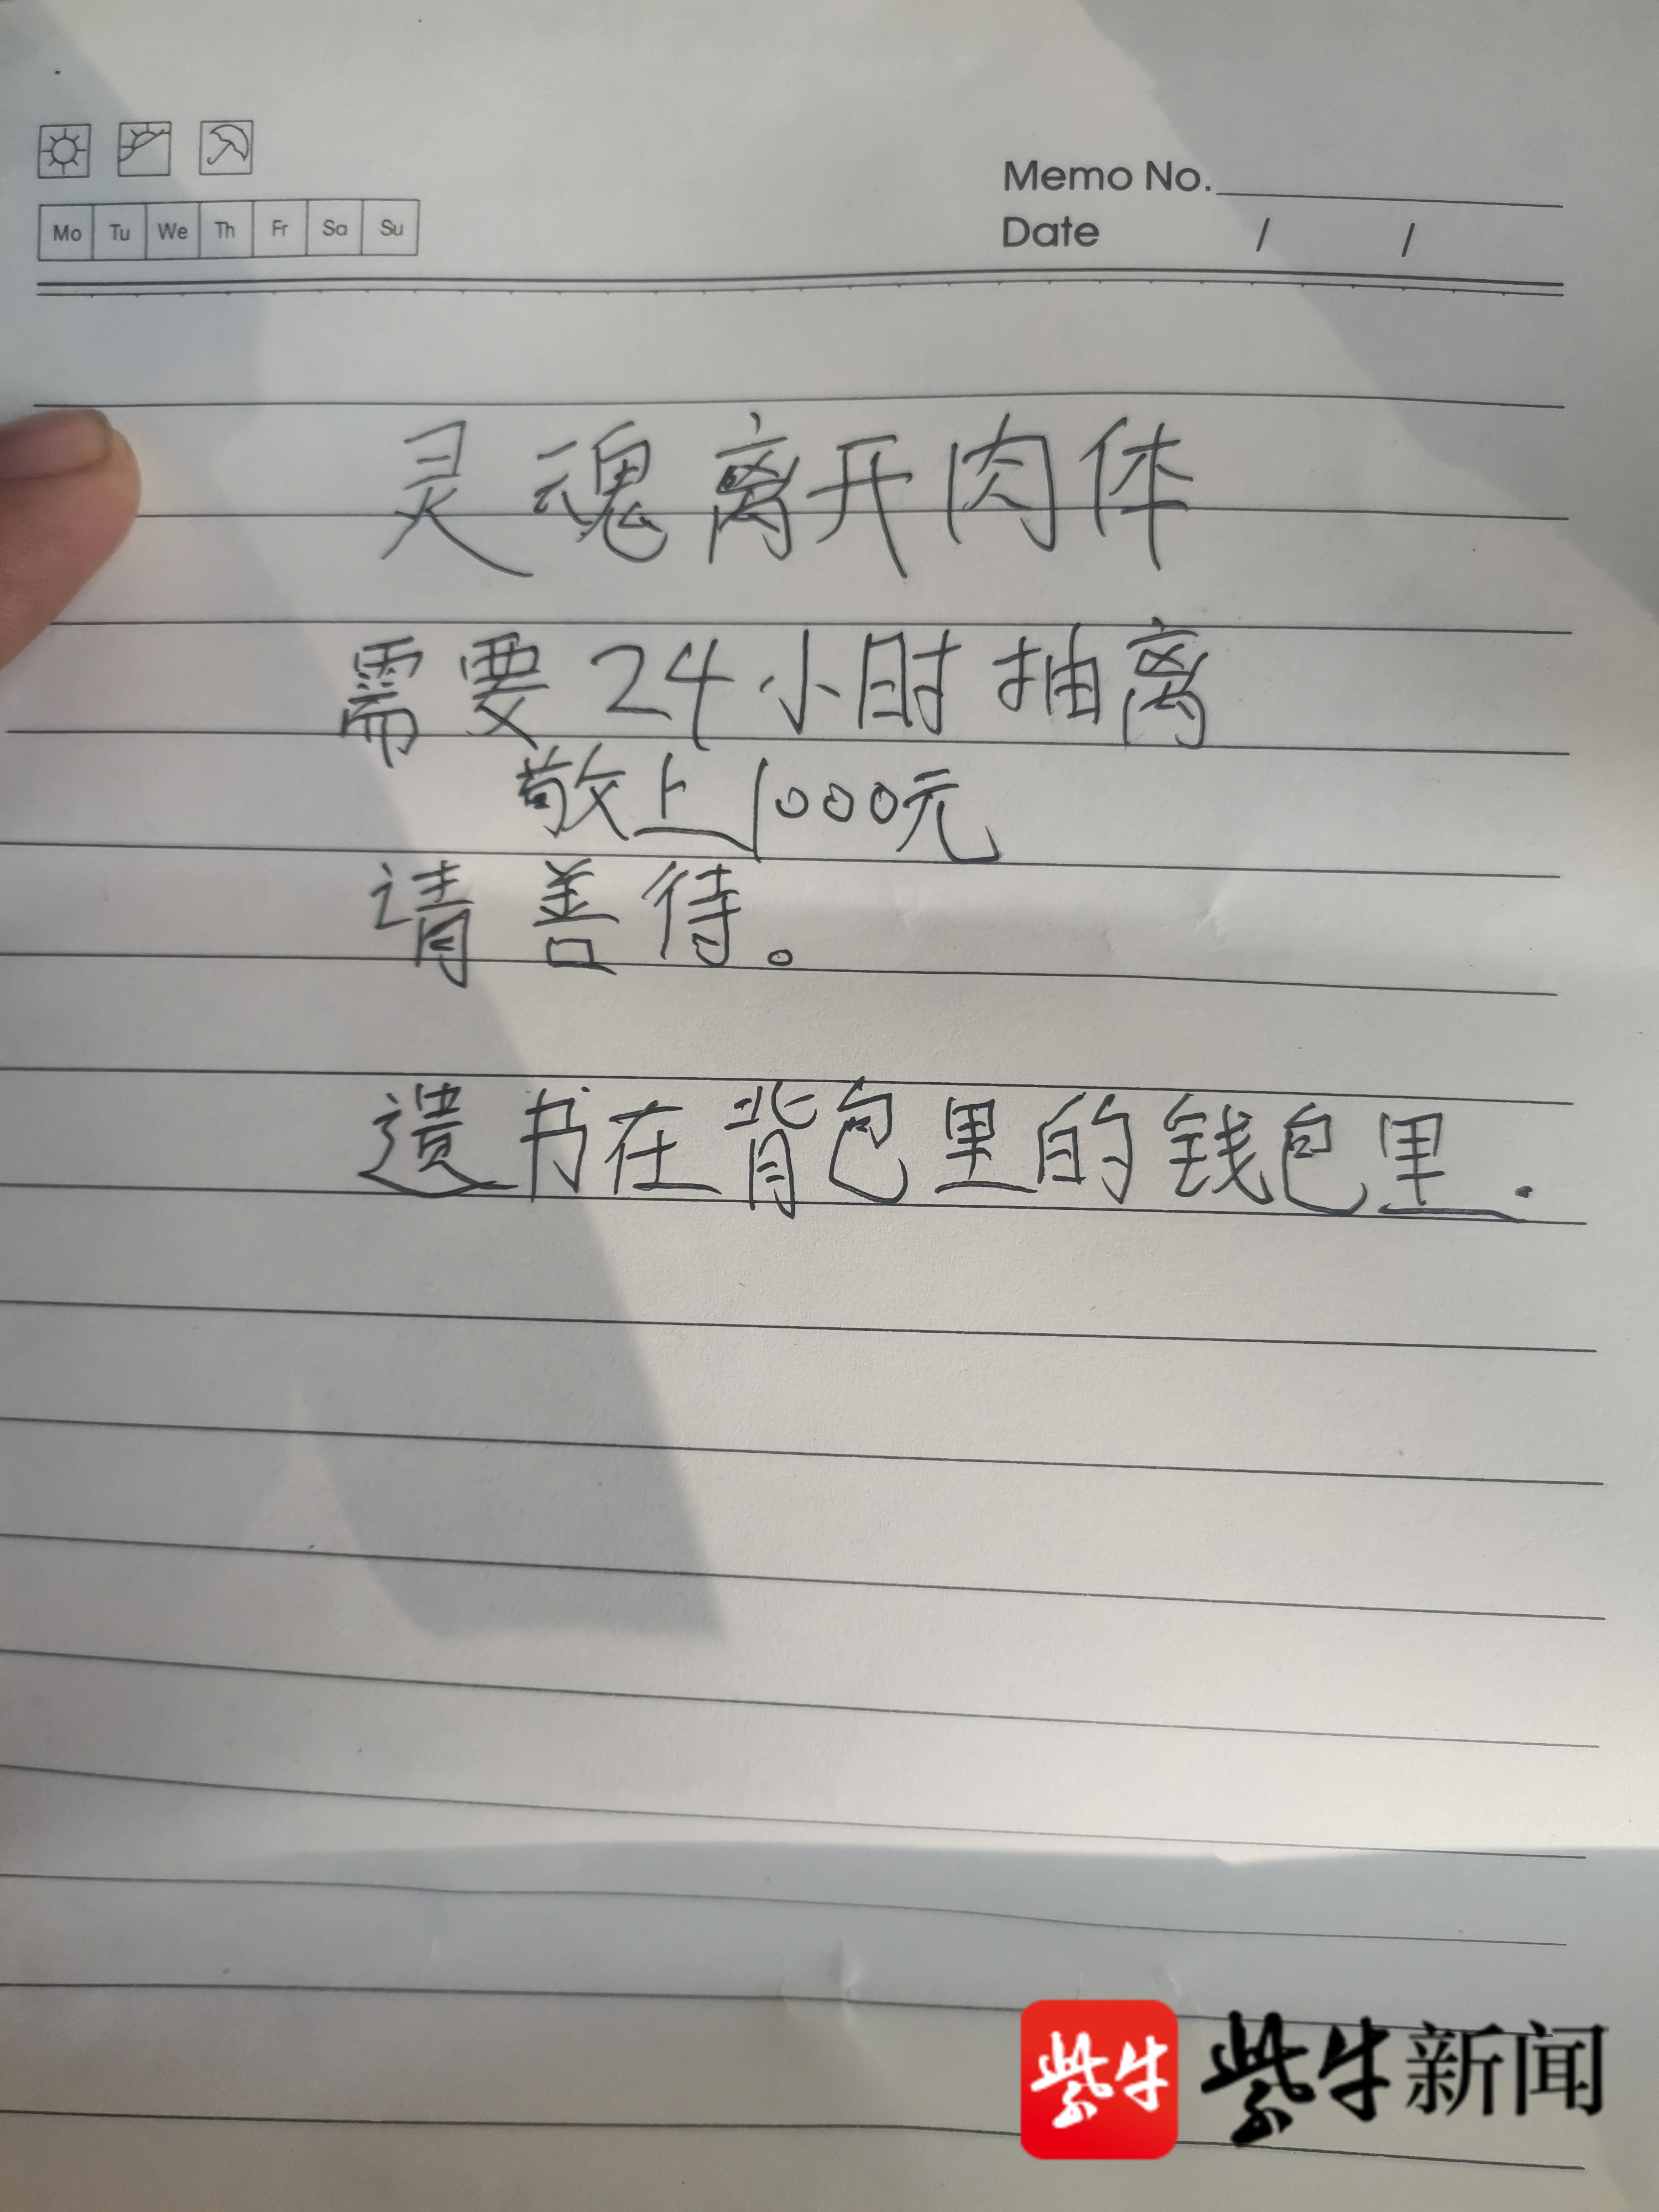 Memo No.
Mo Tu We Th Fr Sa Su
Date / /
灵魂离开肉体
需要24小时抽离
敬上1000元
请善待。
遗书在背包里的钱包里.
紫牛 紫牛新闻